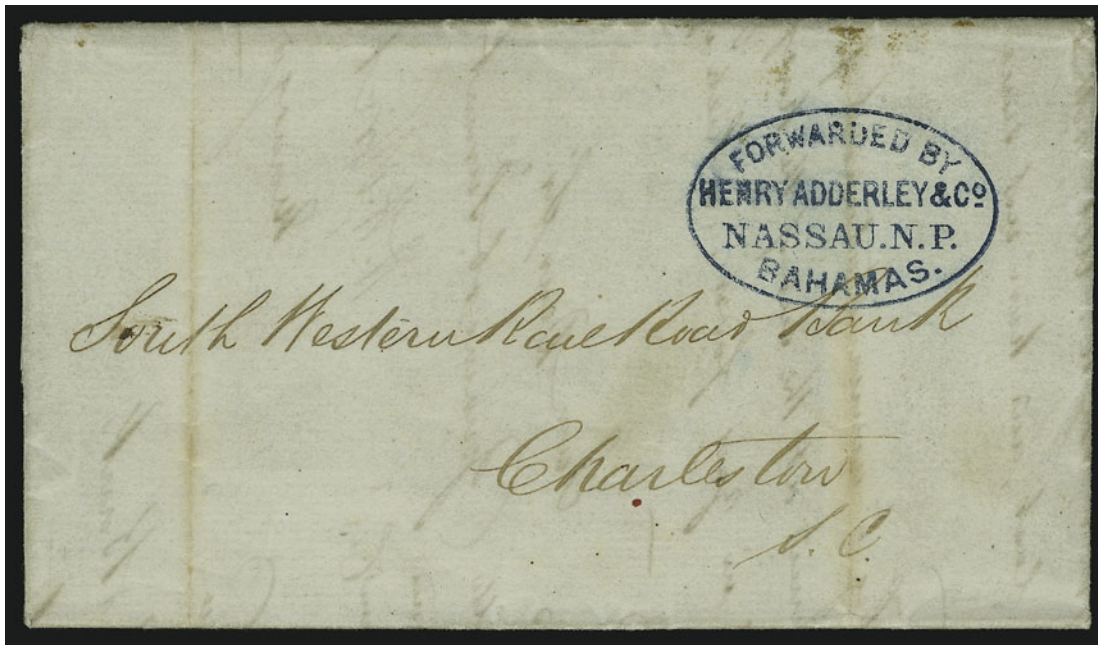 FORWARDED BY
HENRY ADDERLEY & Cº
NASSAU. N. P.
BAHAMAS.
South Western Rail Road Bank
Charleston
S. C.